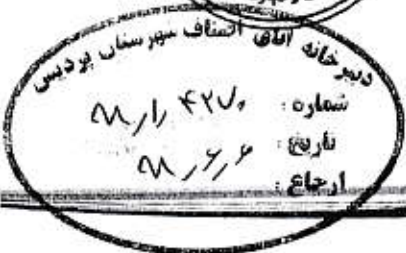 دبیرخانه اتاق اصناف شهرستان پردیس
شماره : ۹۸/۱/۴۲۷۰
تاریخ : ۹۸/۶/۶
ارجاع :